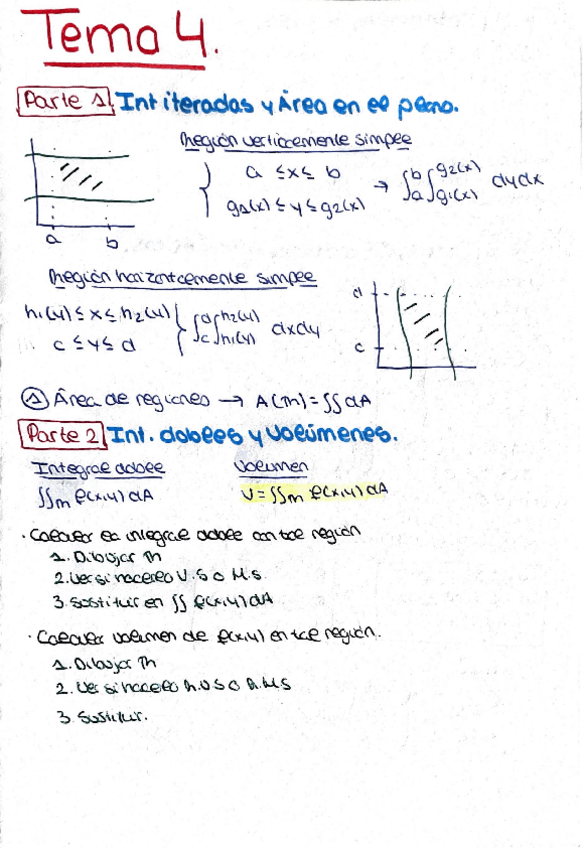 Tema 4.
Parte 1 Int iteradas y Área en el plano.
Región verticalmente simple
a ≤ x ≤ b
g1(x) ≤ y ≤ g2(x)
→ ∫a^b ∫g1(x)^g2(x) dydx
a b
Región horizontalmente simple
h1(y) ≤ x ≤ h2(y)
c ≤ y ≤ d
∫c^d ∫h1(y)^h2(y) dxdy
d
c
① Área de regiones → A(R) = ∫∫ dA
Parte 2 Int. dobles y volúmenes.
Integral doble Volumen
∫∫R f(x,y) dA V = ∫∫R f(x,y) dA
· Calcular la integral doble con tal región
1. Dibujar R
2. Ver si hacerlo V.S o H.S.
3. Sustituir en ∫∫ f(x,y) dA
· Calcular volumen de f(x,y) en tal región.
1. Dibujar R
2. Ver si hacerlo R.V.S o R.H.S
3. Sustituir.